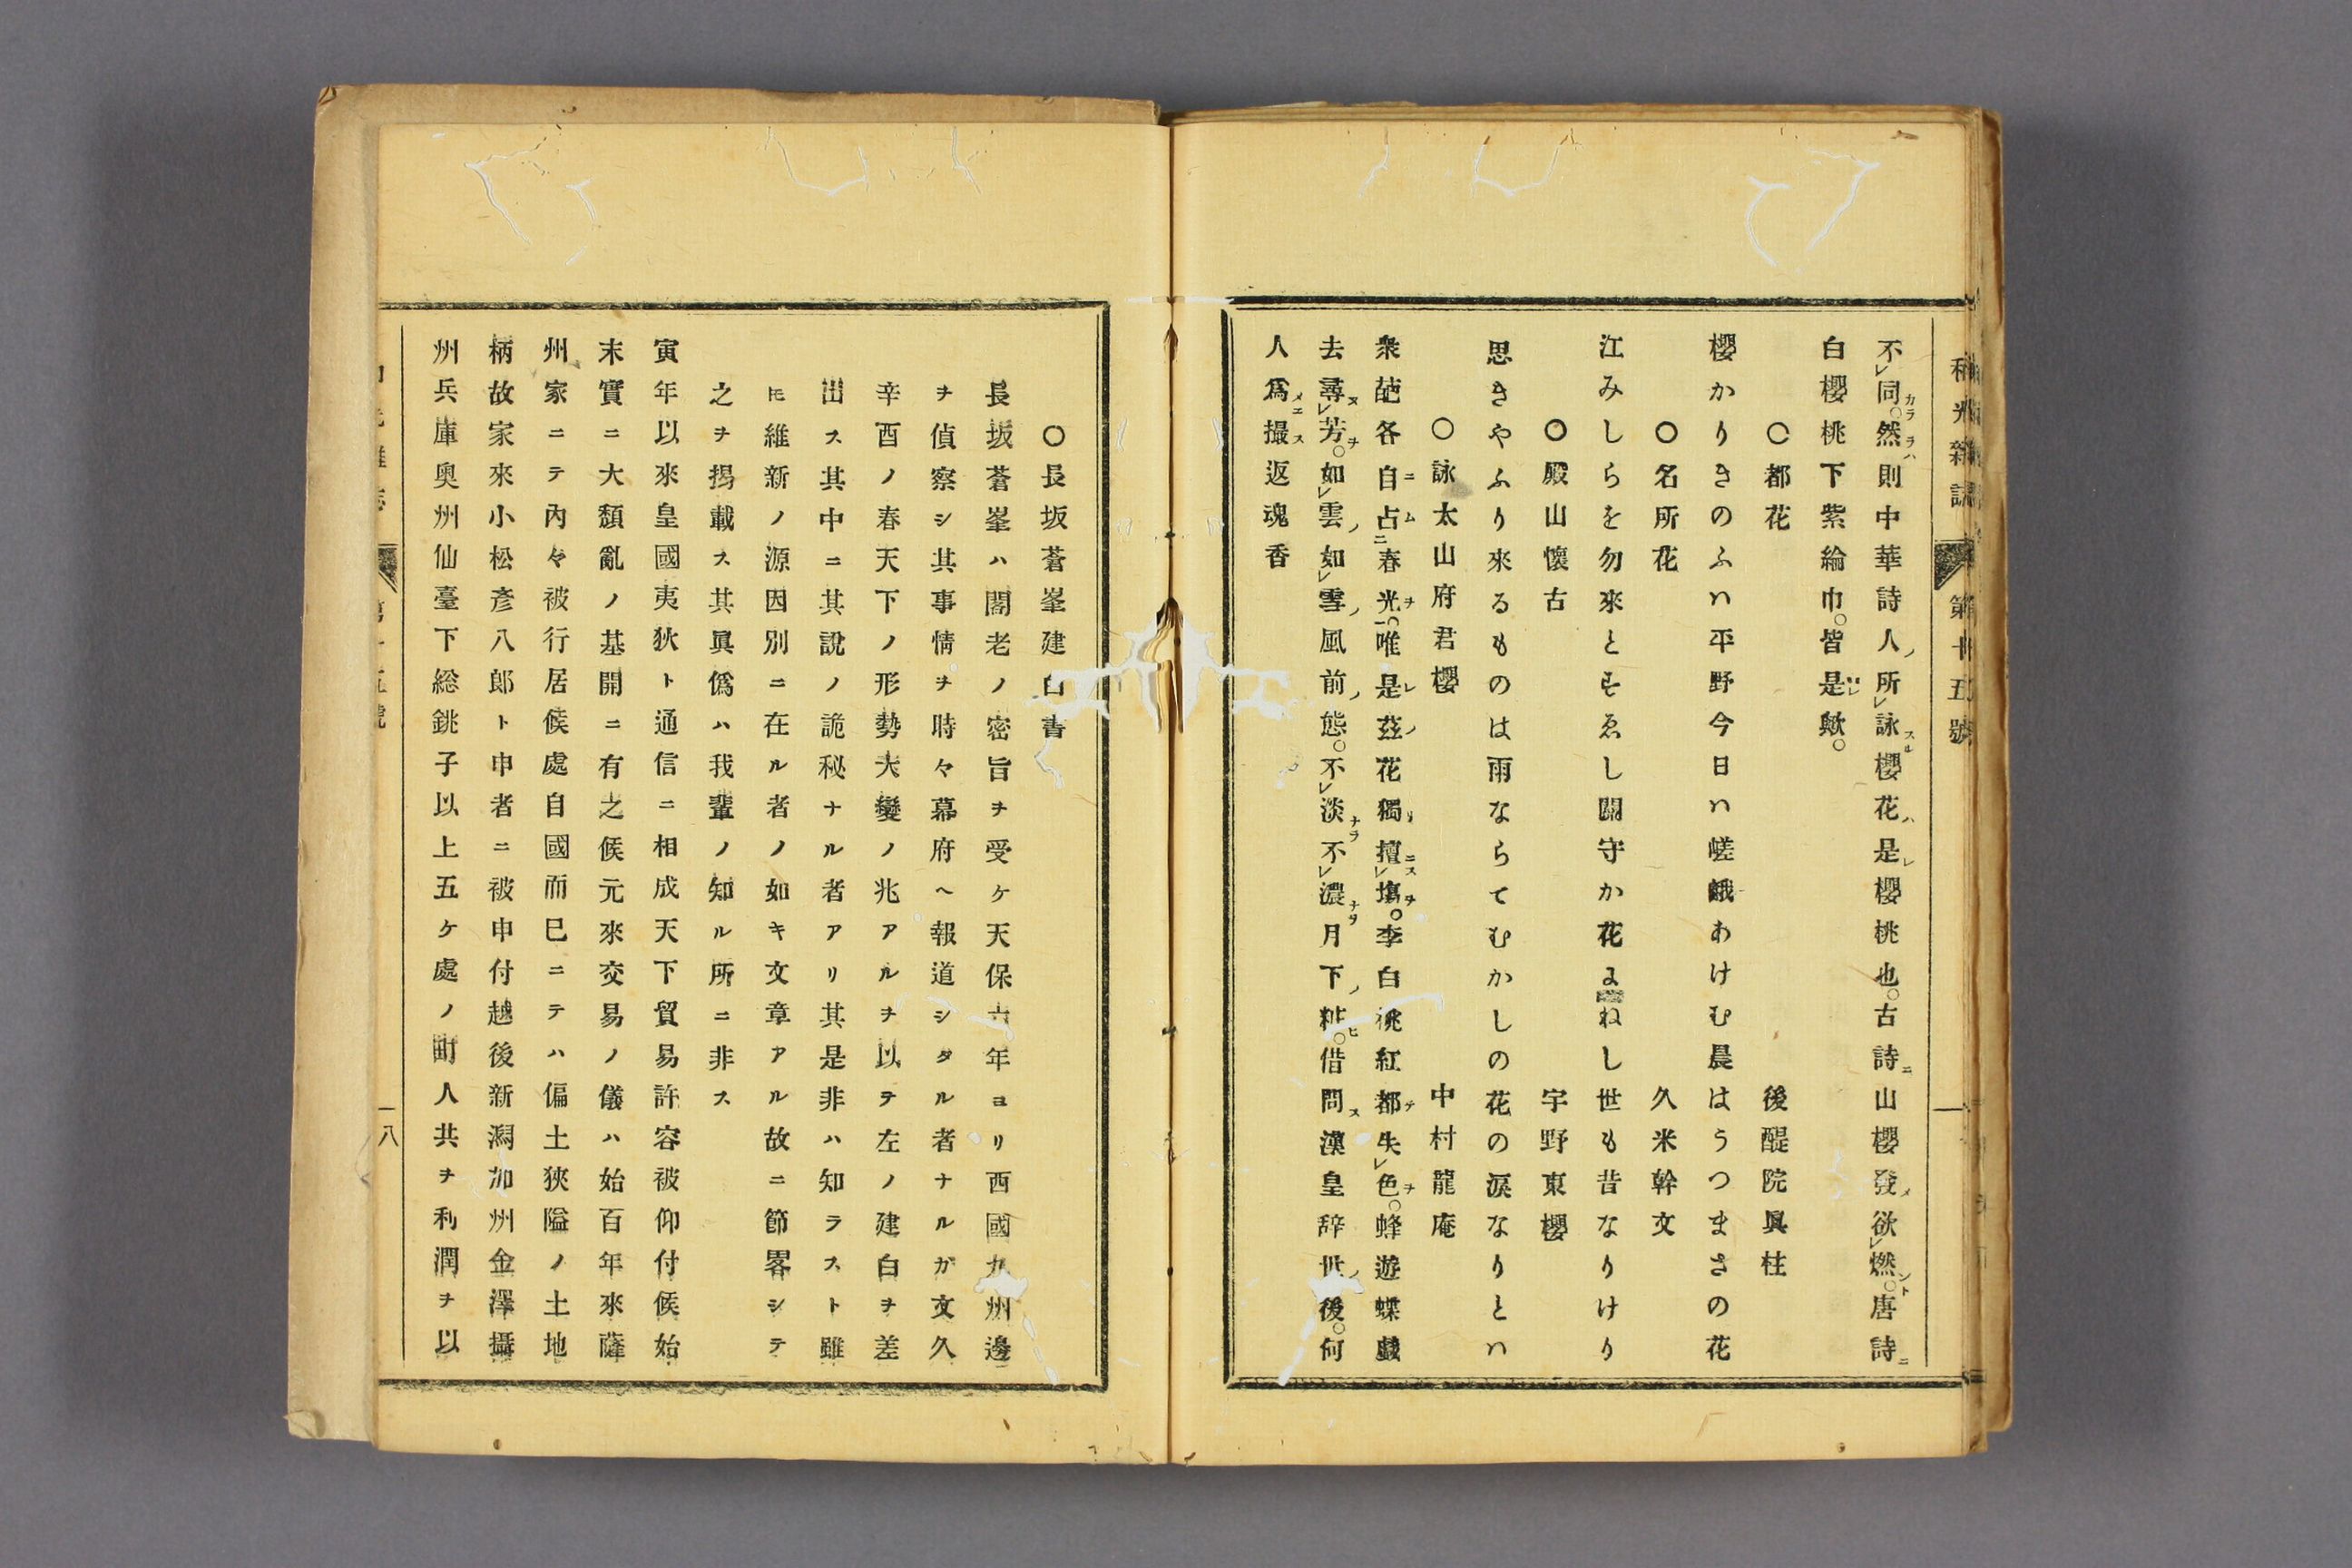 第十五號
不レ同カラ。然ラハ則中華詩人ノ所レ詠スル櫻花ハ是レ櫻桃也。古詩ニ山櫻發メ欲レ燃ント。唐詩ニ
白櫻桃下紫綸巾。皆是レ歟。
〇都花 後醍院眞柱
櫻かりきのふハ平野今日ハ嵯峨あけむ晨はうつまさの花
〇名所花 久米幹文
江みしらを勿來とすゑし關守か花よねし世も昔なりけり
〇殿山懷古 宇野東櫻
思きやふり來るものは雨ならてむかしの花の涙なりとハ
〇詠太山府君櫻 中村龍庵
衆葩各自ニ占ム二春光ヲ一。唯是レ茲ノ花獨リ擅ニス レ塲ヲ。李白桃紅都テ失レ色ヲ。蜂遊蝶戲
去尋ヌレ芳ヲ。如レ雲ノ如レ雪ノ風前ノ態。不レ淡ナラ不レ濃ナラ月下ノ粧ヒ。借問ス漢皇辞世ノ後。何
人爲メニ撮ス返魂香
〇長坂蒼峯建白書
長坂蒼峯ハ閣老ノ密旨ヲ受ケ天保六年ヨリ西國九州邊
ヲ偵察シ其事情ヲ時々幕府ヘ報道シタル者ナルガ文久
辛酉ノ春天下ノ形勢大變ノ兆アルヲ以テ左ノ建白ヲ差
出ス其中ニ其說ノ詭秘ナル者アリ其是非ハ知ラスト雖
𪜈維新ノ源因別ニ在ル者ノ如キ文章アル故ニ節畧シテ
之ヲ揭載ス其眞僞ハ我輩ノ知ル所ニ非ス
寅年以來皇國夷狄ト通信ニ相成天下貿易許容被仰付候始
末實ニ大頽亂ノ基開ニ有之候元來交易ノ儀ハ始百年來薩
州家ニテ內々被行居候處自國而巳ニテハ偏土狹隘ノ土地
柄故家來小松彥八郎ト申者ニ被申付越後新潟加州金澤攝
州兵庫奥州仙臺下総銚子以上五ケ處ノ町人共ヲ利潤ヲ以
一八